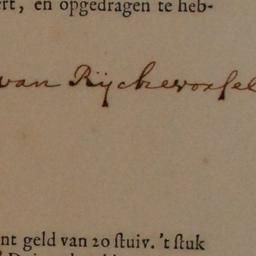 ert, en opgedragen te heb-
van Rijckevorsel
nt geld van 20 ſtuiv. 't ſtuk